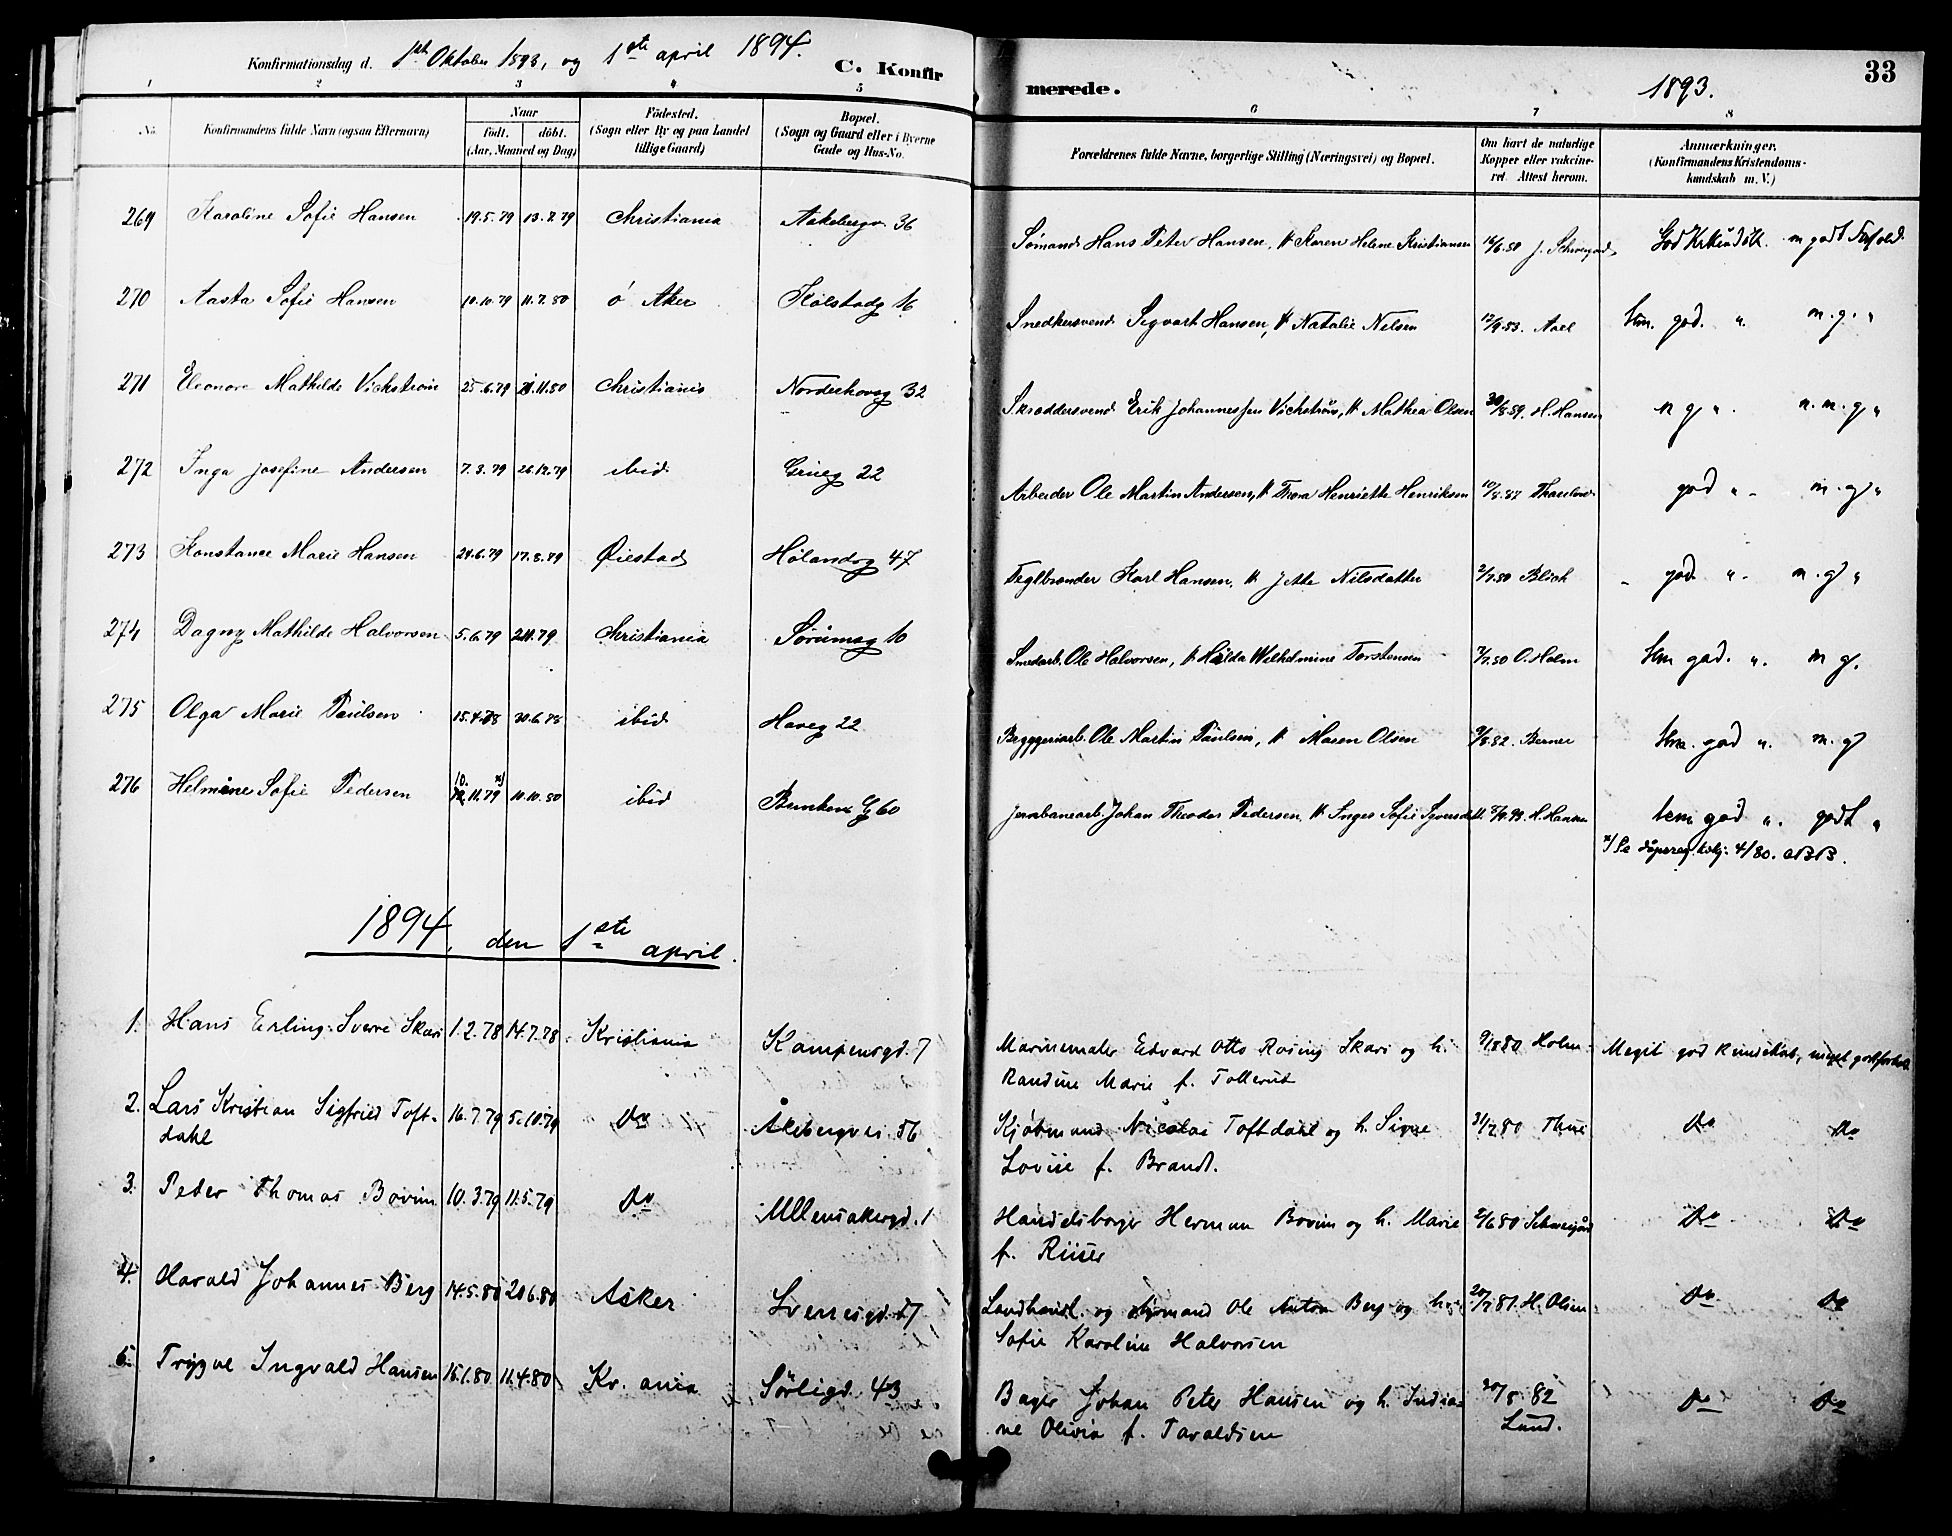 Konfirmationsdag d. 1ste Oktober 1893, og 1ste april 1894.
C. Konfirmerede.
1893.
33
1 2 3 4 5 6 7 8
No.
Konfirmandens fulde Navn (ogsaa Efternavn)
Naar
födt. döbt.
(Aar, Maaned og Dag)
Födested.
(Sogn eller By og paa Landet
tillige Gaard)
Bopæl.
(Sogn og Gaard eller i Byerne
Gade og Hus-No.
Forældrenes fulde Navne, borgerlige Stilling (Næringsvei) og Bopæl.
Om havt de naturlige
Kopper eller vakcine-
ret. Attest herom.
Anmærkninger.
(Konfirmandens Kristendoms-
kundskab m. V.)
269 Karoline Sofie Hansen 19.5.79 13.7.79 Christiania Aakebergv 36 Sømand Hans Peter Hansen, Karen Helene Kristiansen J. Schwegaard God m godt Forhold.
270 Aasta Sofie Hansen 10.10.79 11.7.80 Ö Aker Kolstadg 16 Snedkersvend Sigvart Hansen, Natalie Nelsen 12/9.83. god. " m.g. "
271 Eleonore Mathilde Vickstrøm 25.6.79 Christiania Norderhovsg 32 Skræddersvend Erik Johannessen Vickstrøm, Mathea Olsen H. Hansen n g " m. g "
272 Inga Josefine Andersen 7.3.79 26.12.79 ibid. Grüneg 22 Arbeider Ole Martin Andersen, Thora Henriette Henriksen Thaulow god " m. g "
273 Konstance Marie Hansen 21.6.79 17.8.79 Øiestad Hølandsg 47 Teglbrænder Karl Hansen, Jette Nilsdatter 2/7.80 Blich god " m. g "
274 Dagny Mathilde Halvorsen 5.6.79 Christiania Sørumsg 10 Smedarb. Ole Halvorsen, Hilda Wilhelmine Torstensen 7/7.80 O. Holm tem god. " m g.
275 Olga Marie Paulsen 15.4.78 30.6.78 ibid Haveg 22 Bryggeriarb. Ole Martin Paulsen, Maren Olsen 9/8.82. Berner tem. god " m. g
276 Helmine Sofie Pedersen 10. 11.79 x) 10.10.80 ibid Bunkens G 60 Jernbanearb. Johan Theodor Pedersen, Inger Sofie Syversdt H. Hansen tem god " godt "
x) Se dåpsreg. 4/80.
1894, den 1ste april.
1. Hans Erling Sverre Skari 1.2.78 14.7.78 Kristiania Kampensgd. 7 Marinemaler Edvard Otto Rosing Skari og h. 9/880 Holm Meget god Kundskab, meget godt forhold
Randine Marie f. Tollerud
2. Lars Kristian Sigfried Toft- 16.7.79 5.10.79 Do Åkebergvei. 56 Kjøbmand Nicolai Toftdahl og h. Signe 31/780 Thue Do Do
dahl Lovise f. Brandt.
3. Peder Thomas Bovim 10.3.79 11.5.79 Do Ullensakergd. 1 Handelsborger Herman Bovim og h. Marie 2/680 Schweigård Do Do
f. Riiser
4. Harald Johannes Berg 14.5.80 20.6.80 Asker Sverresgd. 17 Landhandl. og Ole Anton Berg og h. 20/781. H. Olsen Do Do
Sofie Karoline Halvorsen
5. Trygve Ingvald Hansen 15.1.80 11.4.80 Kr. ania Sörligd. 43 Bager Johan Peter Hansen og h. India- 20/8.82 Do Do
ne Olivia f. Taraldsen Lund.